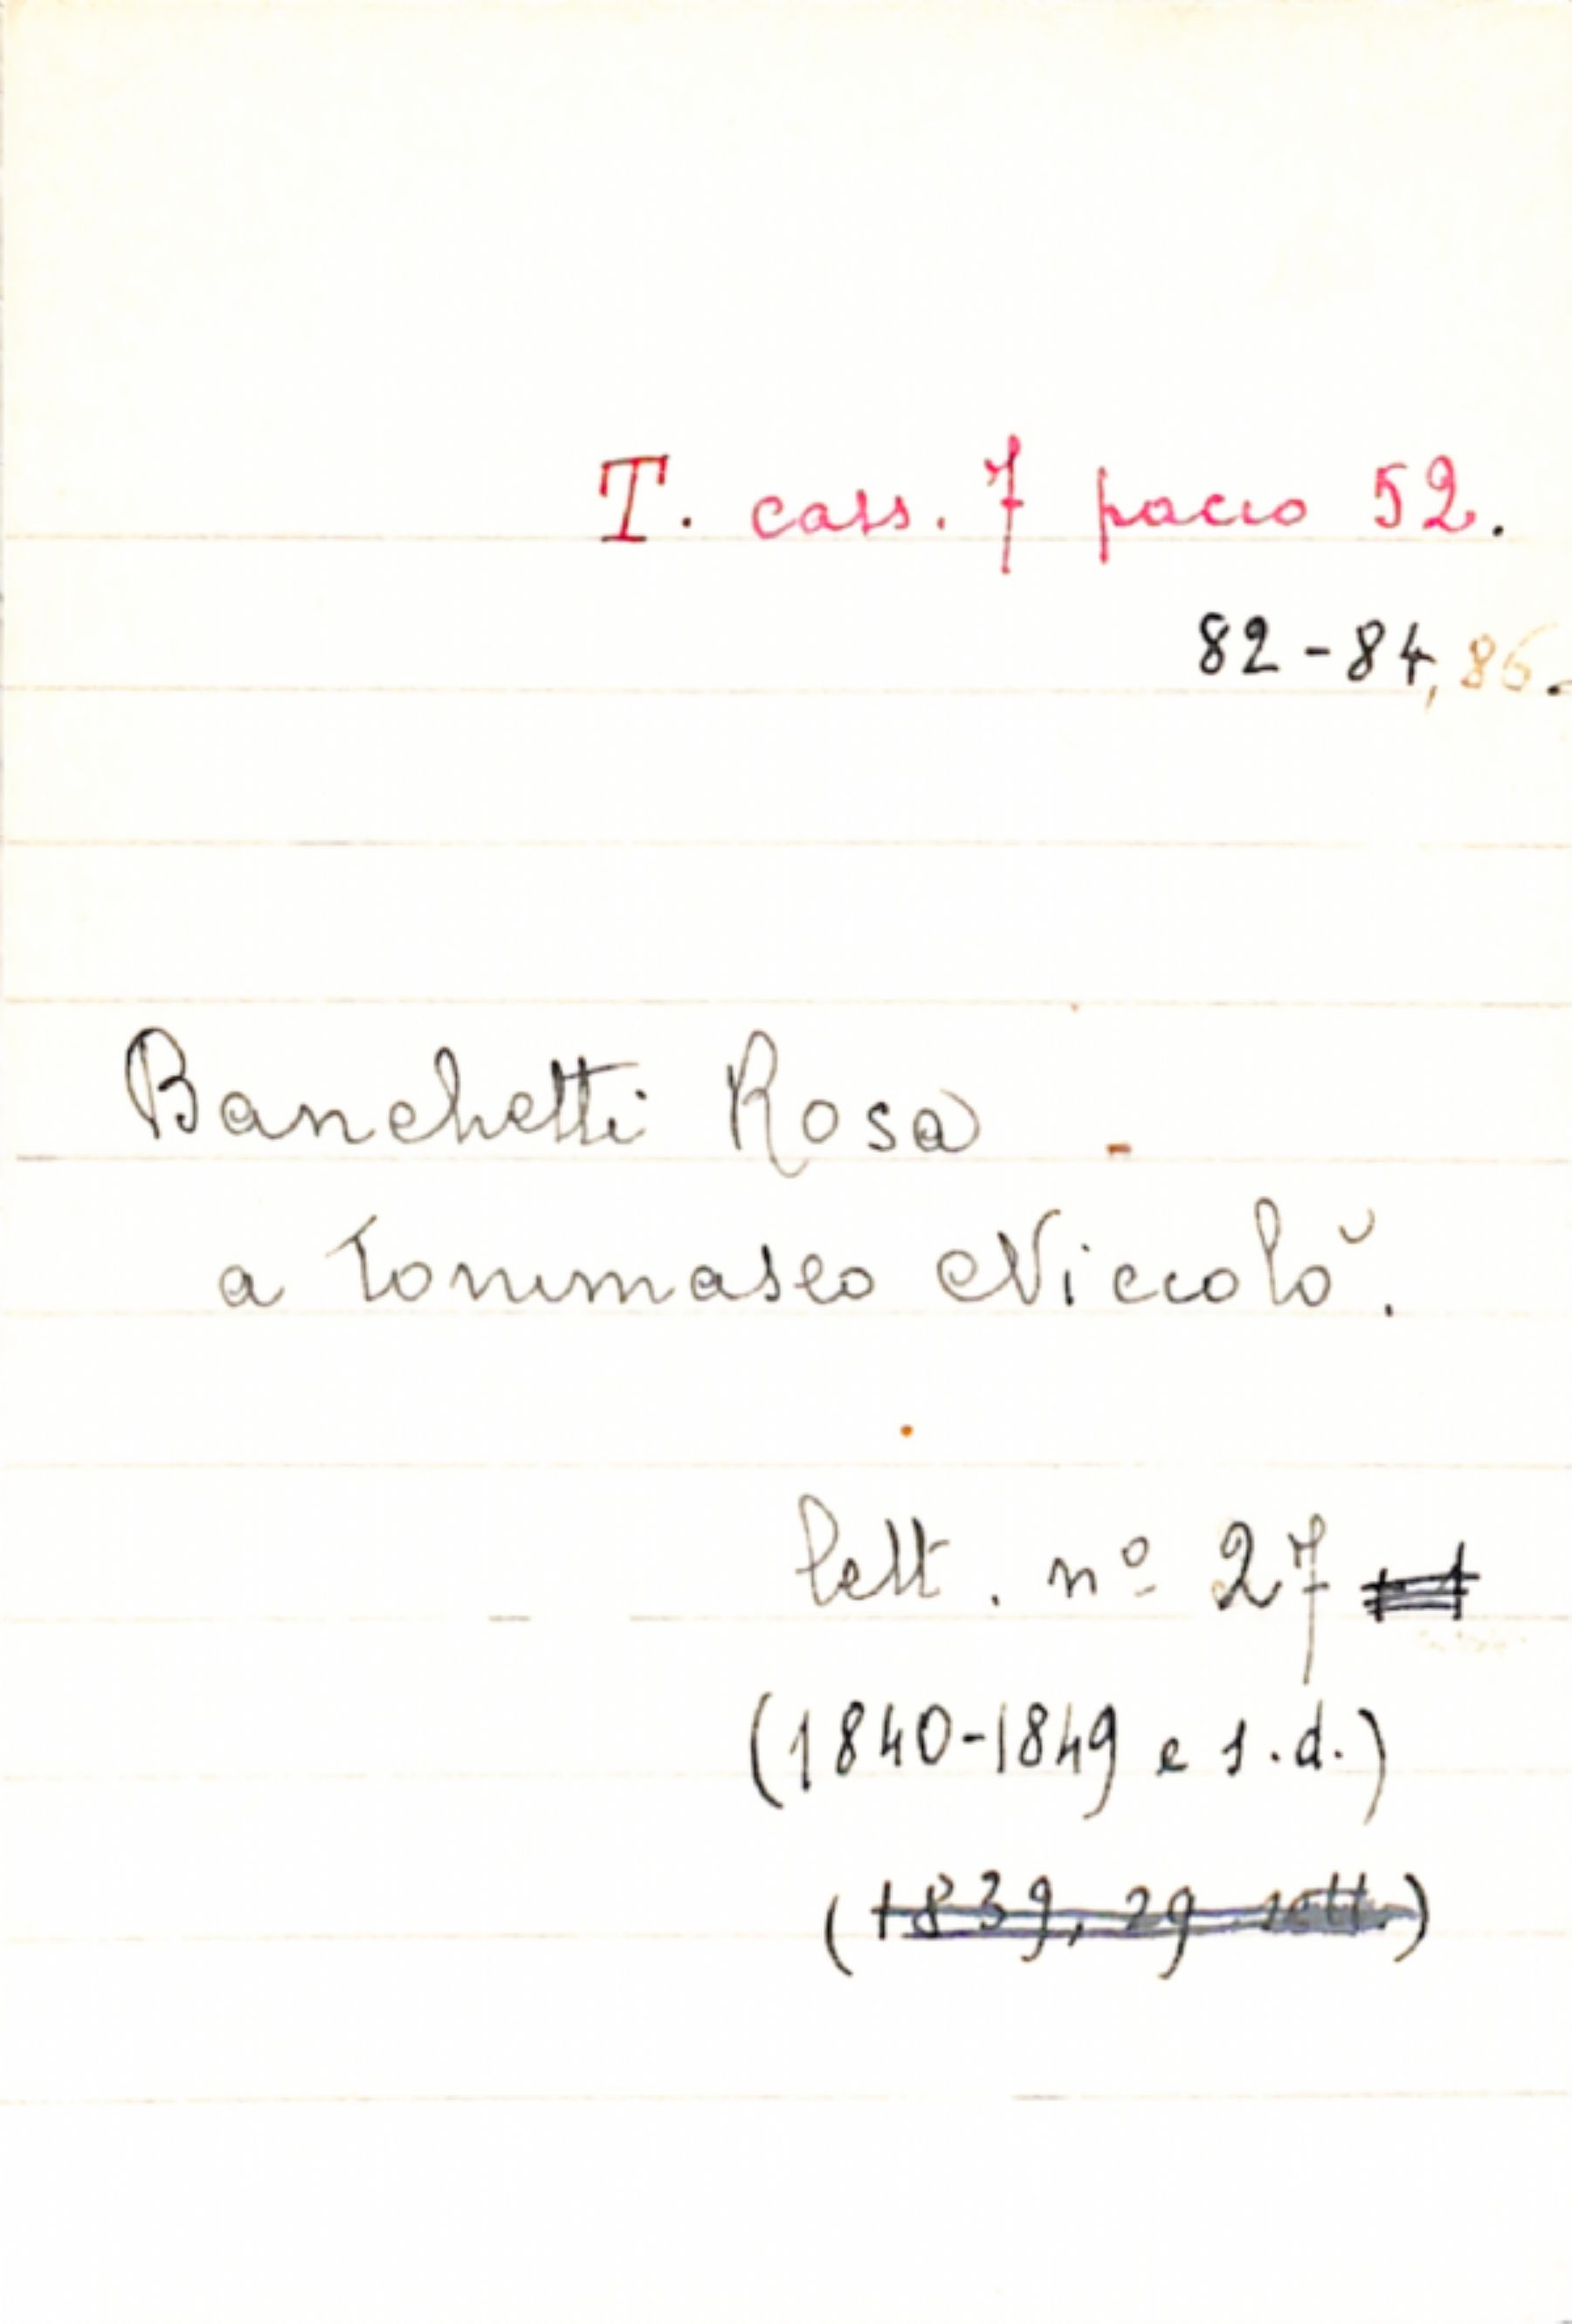 T. cass. 7 pacco 52.
82-84, 86.
Banchetti Rosa
a Tommaseo Niccolò.
lett. nº 27
(1840-1849 e s.d.)
(1839, 29 sett.)